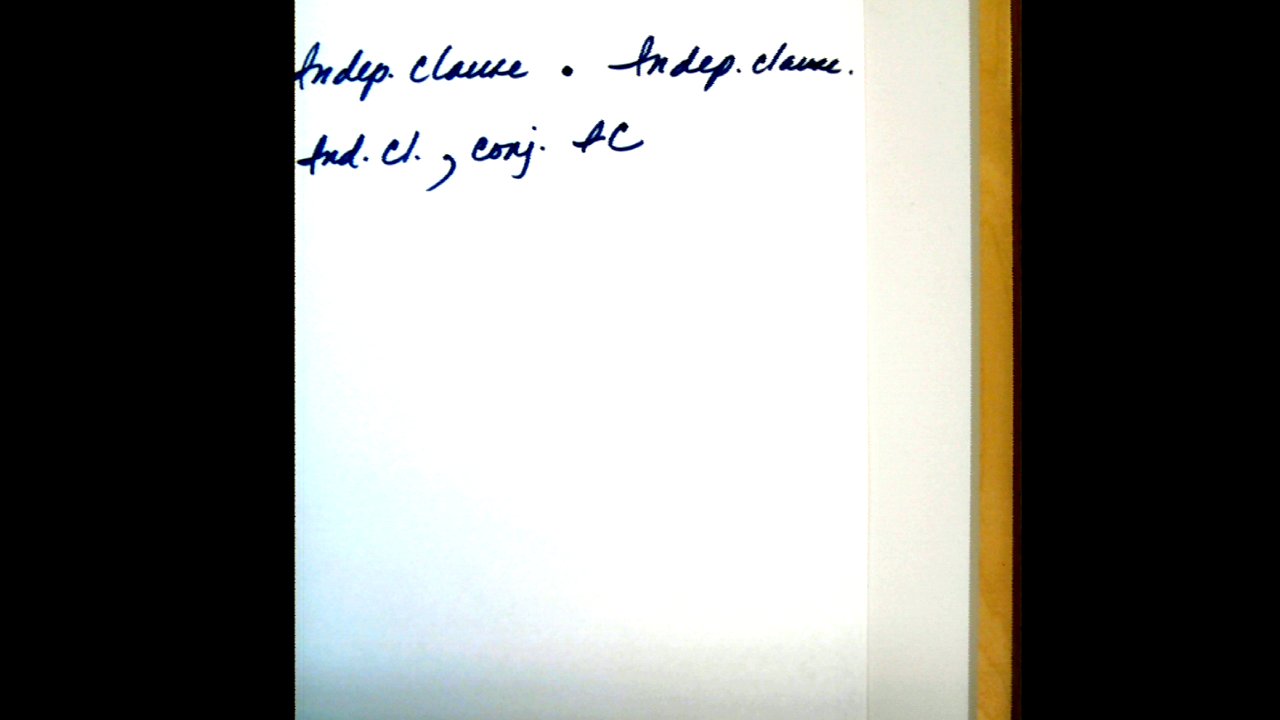 Indep. clause . Indep. clause.
Ind. cl. , conj. IC